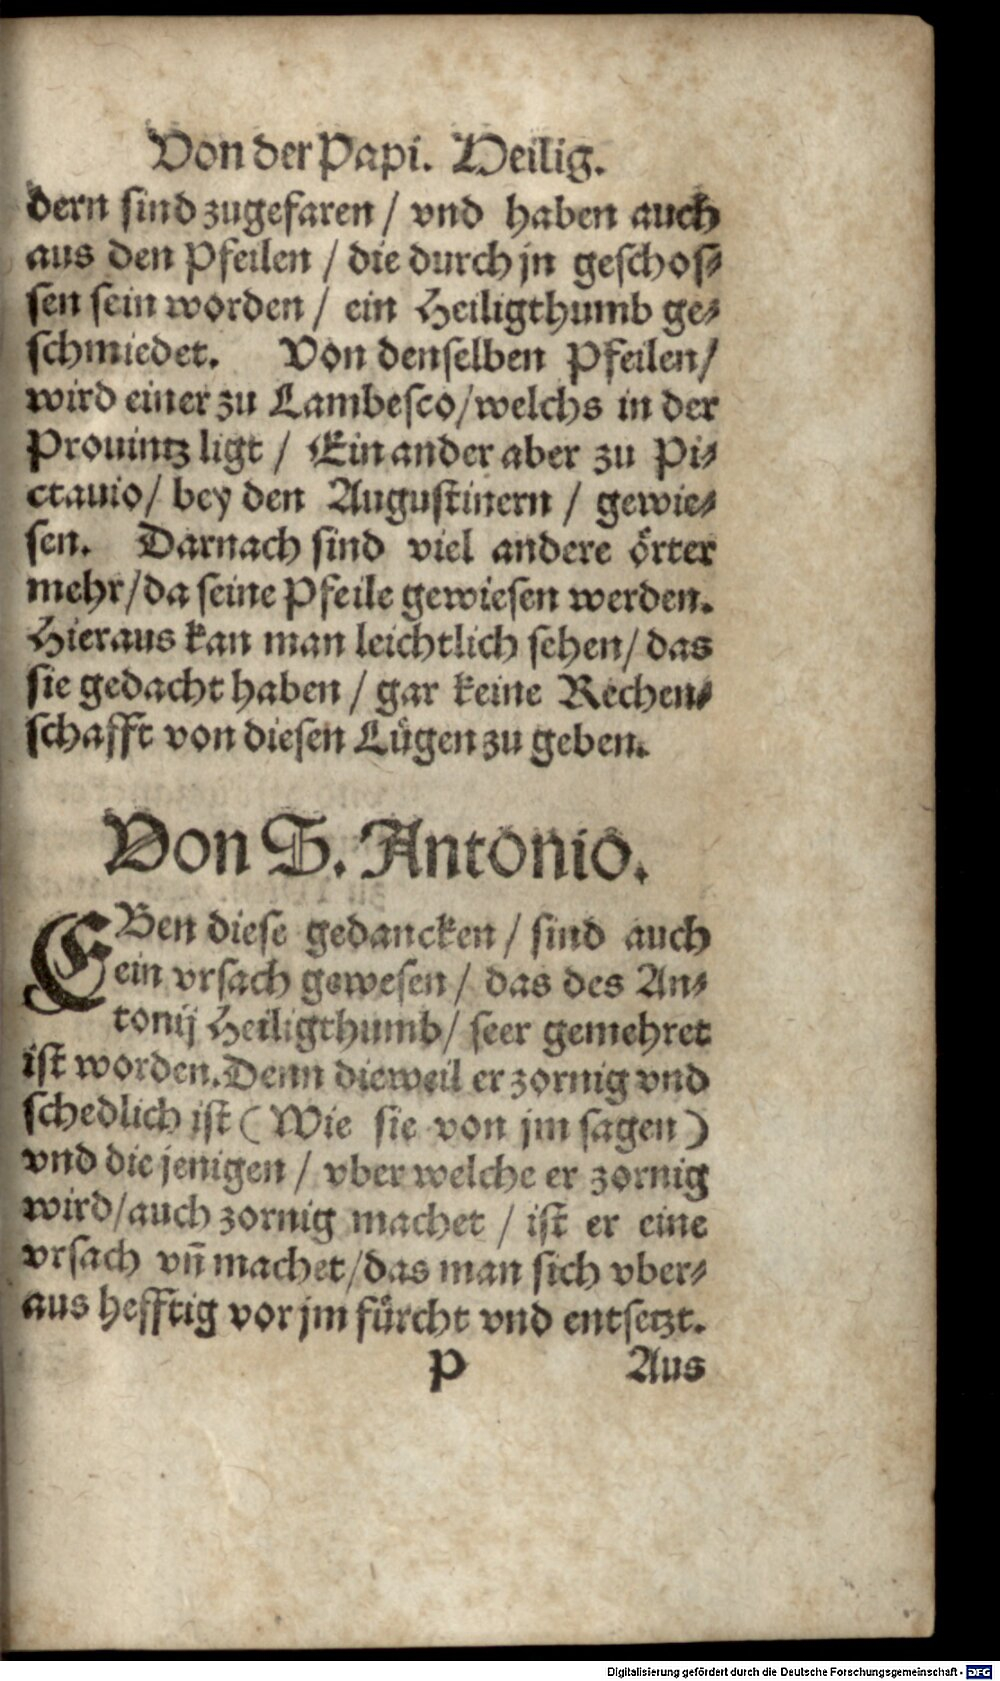 Von der Papi. Heilig.
dern sind zugefaren / vnd haben auch
aus den Pfeilen / die durch jn geschos⸗
sen sein worden / ein Heiligthumb ge⸗
schmiedet. Von denselben Pfeilen /
wird einer zu Lambesco / welchs in der
Prouintz ligt / Ein ander aber zu Pi⸗
ctauio / bey den Augustinern / gewie⸗
sen. Darnach sind viel andere örter
mehr / da seine Pfeile gewiesen werden.
Hieraus kan man leichtlich sehen / das
sie gedacht haben / gar keine Rechen⸗
schafft von diesen Lügen zu geben.
Von S. Antonio.
EBen diese gedancken / sind auch
ein vrsach gewesen / das des An⸗
tonij Heiligthumb / seer gemehret
ist worden. Denn dieweil er zornig vnd
schedlich ist ( Wie sie von jm sagen )
vnd die jenigen / vber welche er zornig
wird / auch zornig machet / ist er eine
vrsach vñ machet / das man sich vber⸗
aus hefftig vor jm fürcht vnd entsetzt.
P Aus
Digitalisierung gefördert durch die Deutsche Forschungsgemeinschaft - DFG